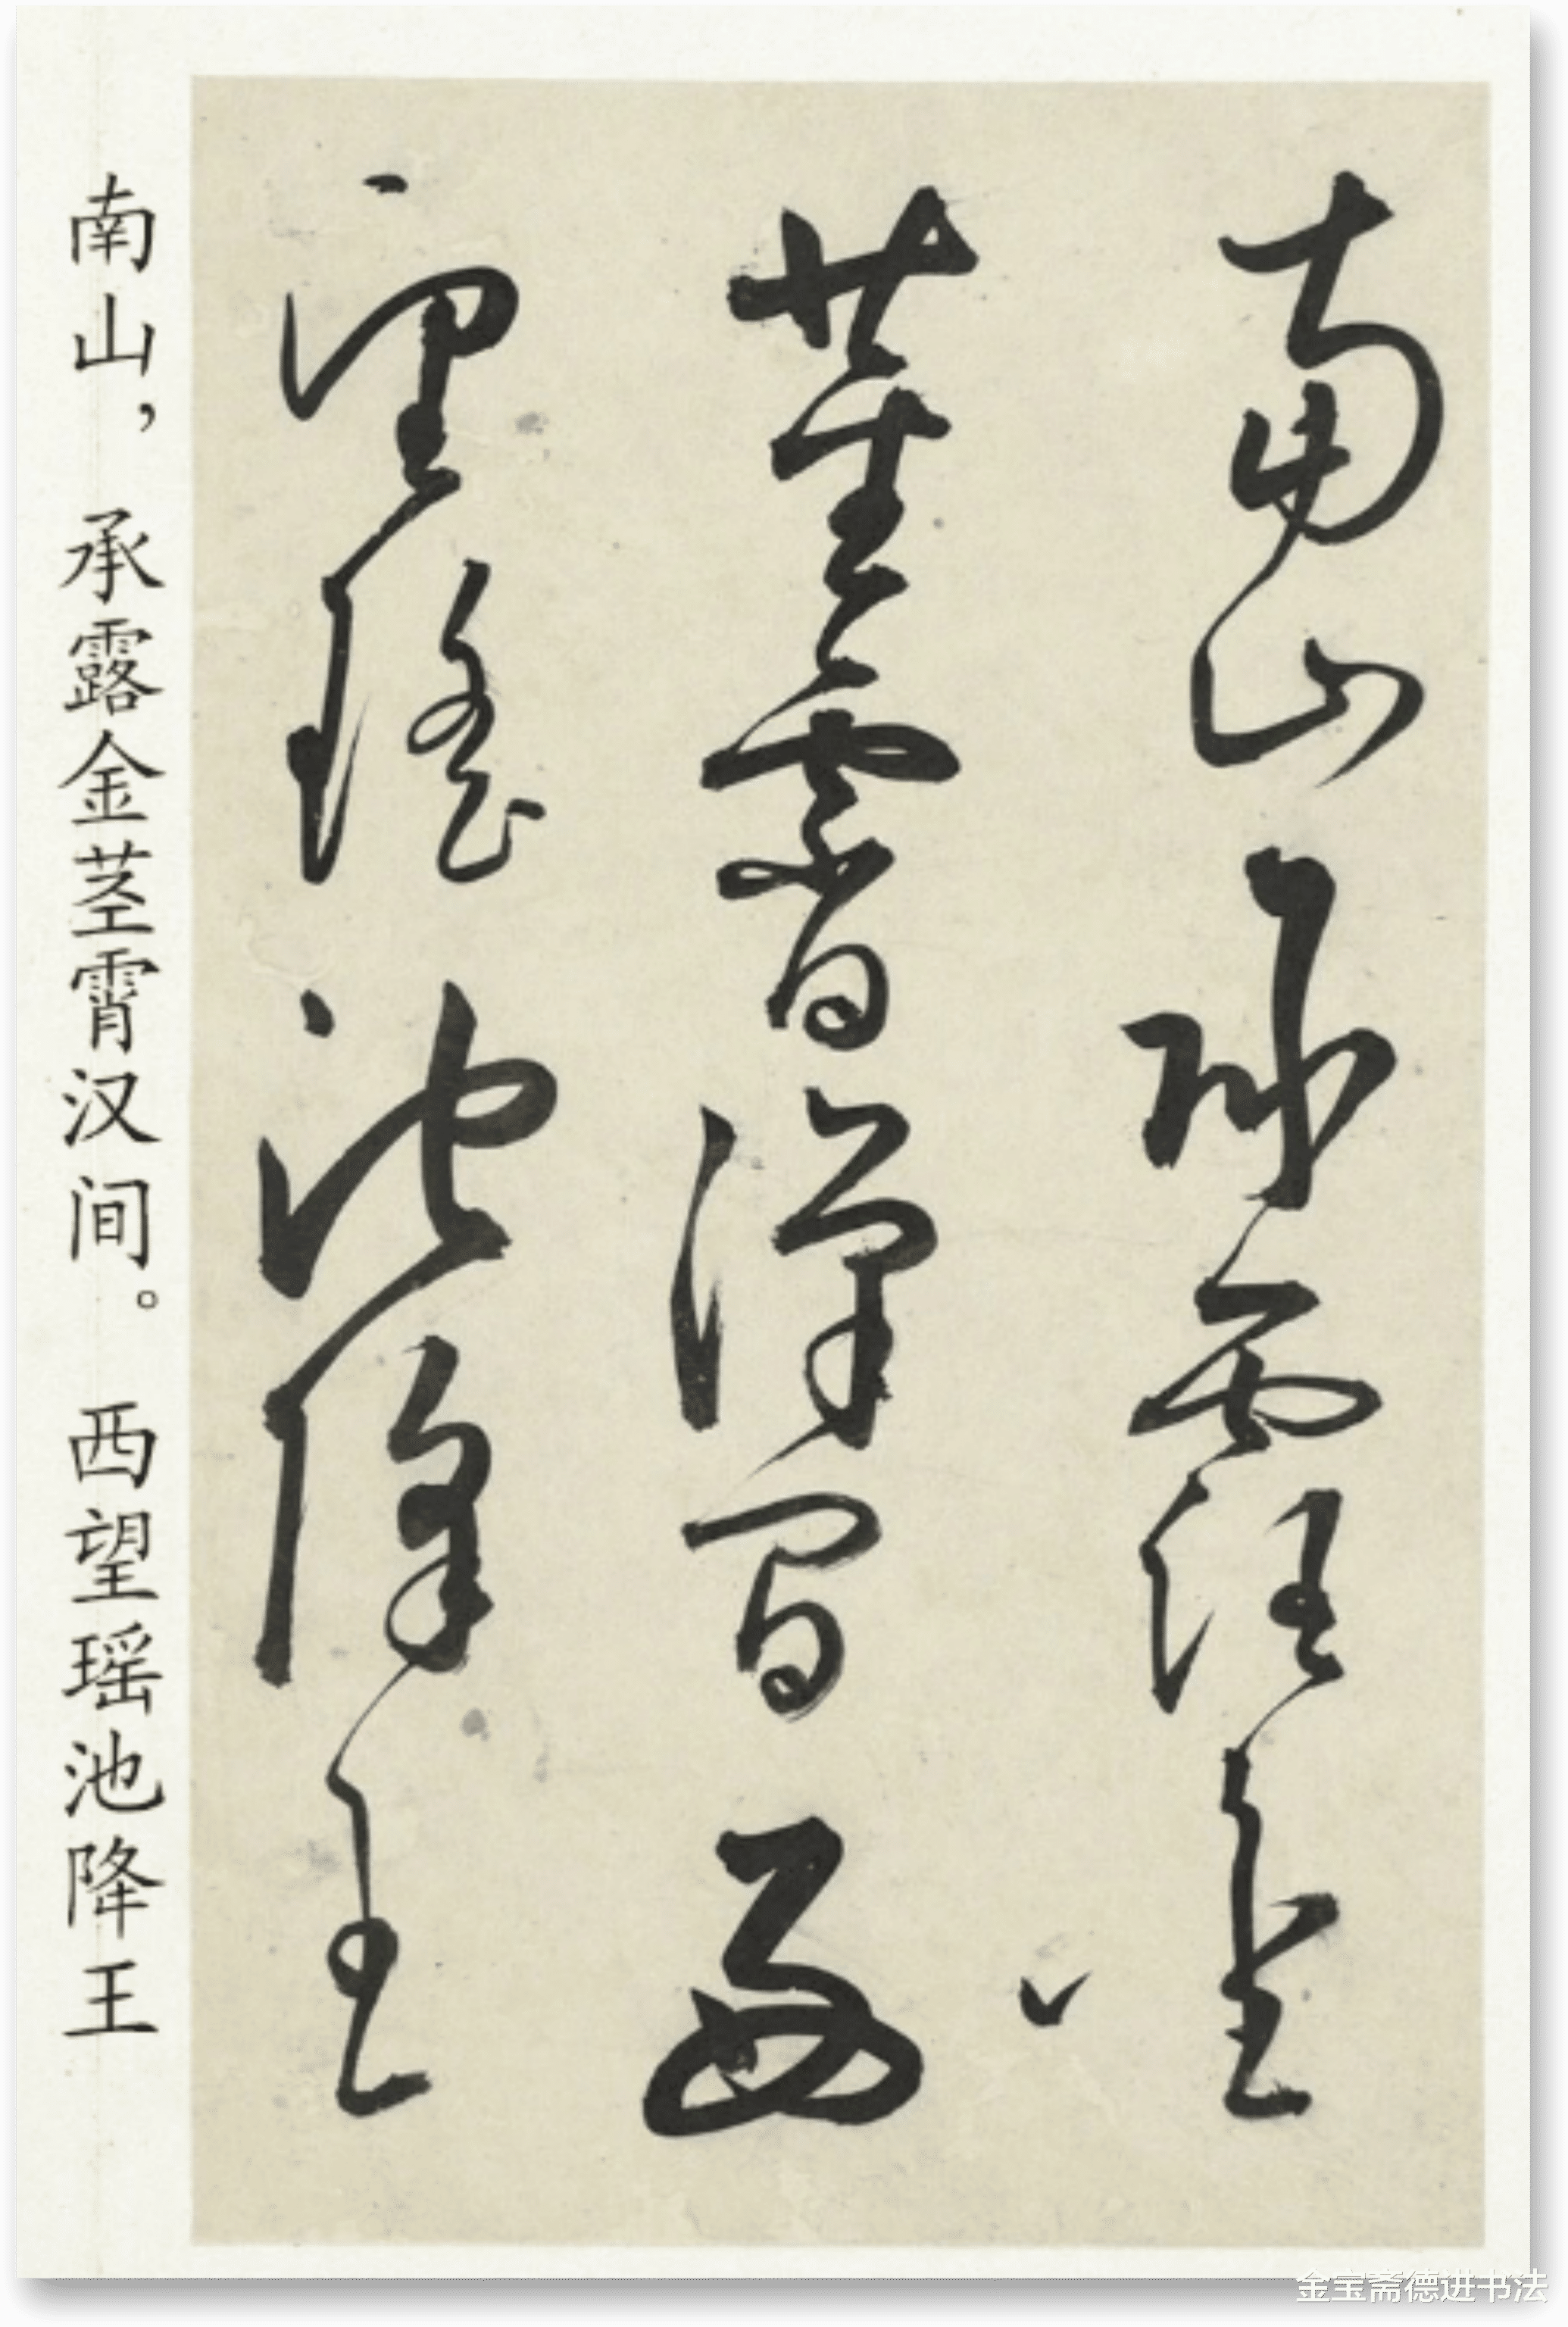 南山承露金
茎霄汉间西
望瑶池降王
南山，承露金茎霄汉间。西望瑶池降王
金宝斋德进书法